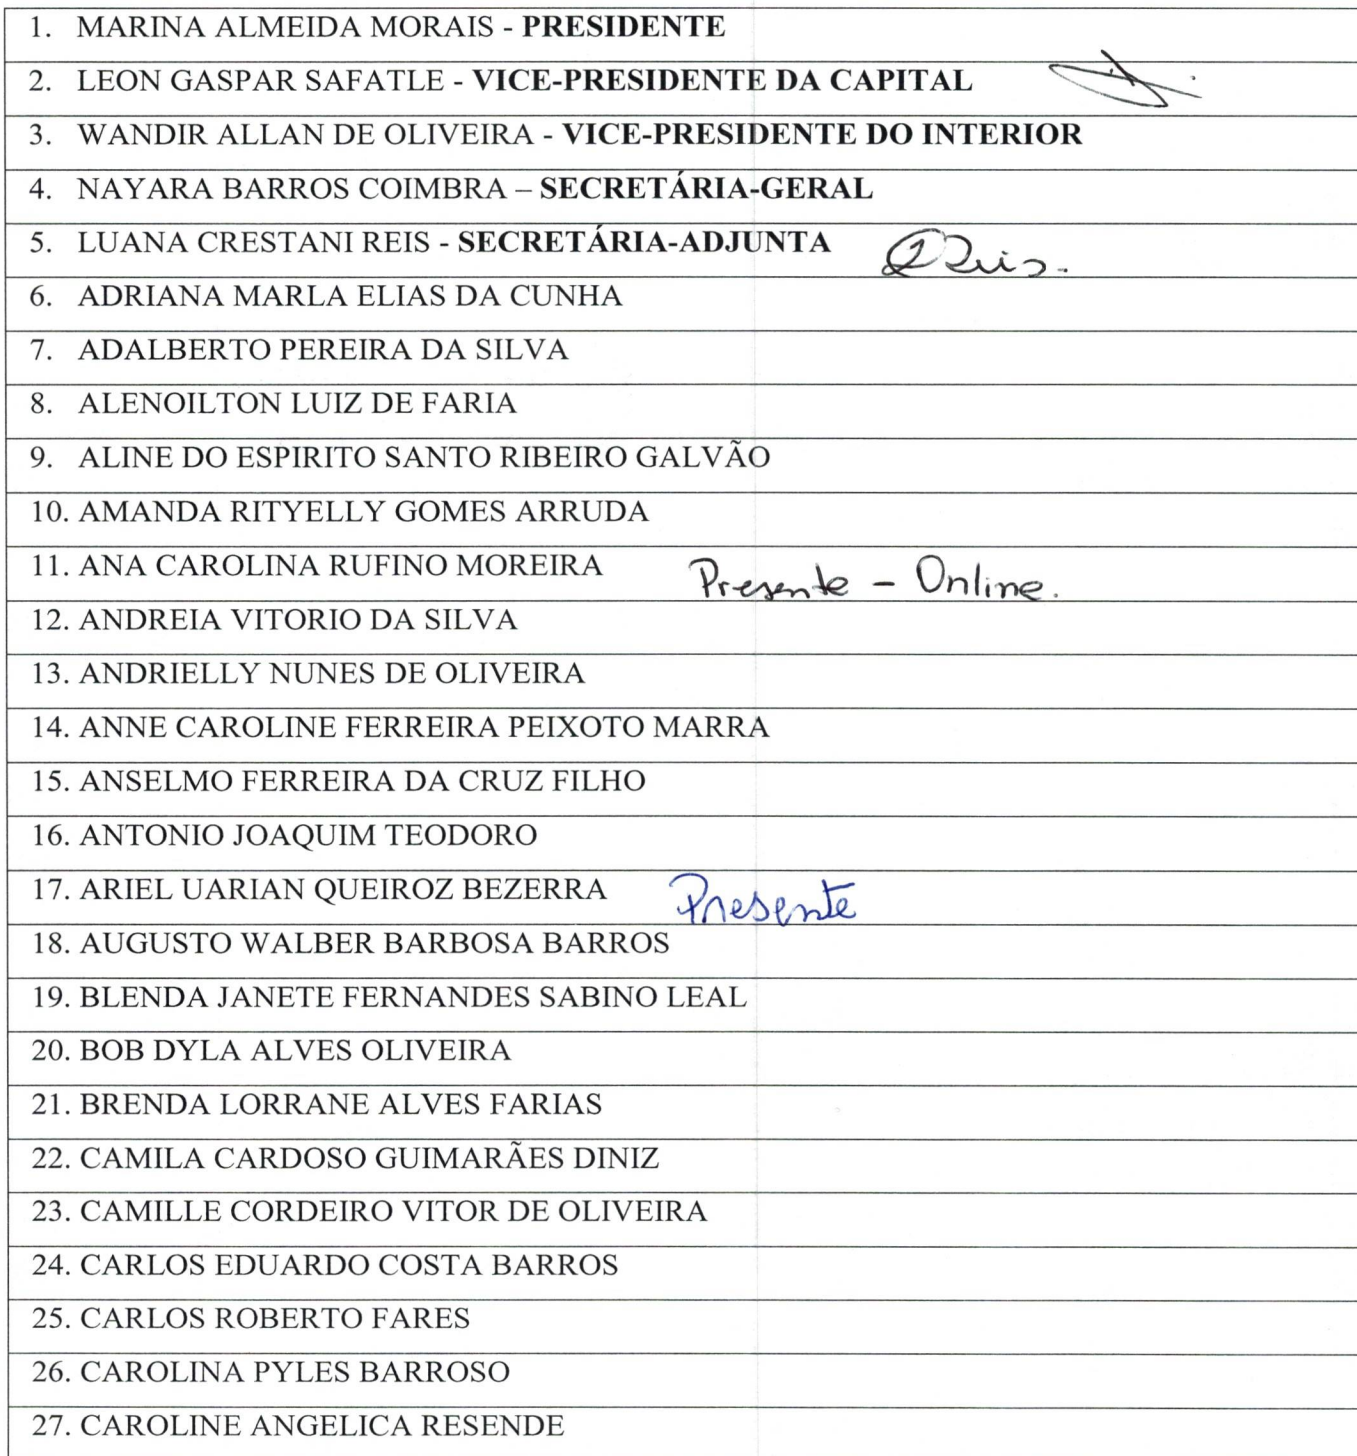 1. MARINA ALMEIDA MORAIS - PRESIDENTE
2. LEON GASPAR SAFATLE - VICE-PRESIDENTE DA CAPITAL
3. WANDIR ALLAN DE OLIVEIRA - VICE-PRESIDENTE DO INTERIOR
4. NAYARA BARROS COIMBRA – SECRETÁRIA-GERAL
5. LUANA CRESTANI REIS - SECRETÁRIA-ADJUNTA
6. ADRIANA MARLA ELIAS DA CUNHA
7. ADALBERTO PEREIRA DA SILVA
8. ALENOILTON LUIZ DE FARIA
9. ALINE DO ESPIRITO SANTO RIBEIRO GALVÃO
10. AMANDA RITYELLY GOMES ARRUDA
11. ANA CAROLINA RUFINO MOREIRA Presente - Online.
12. ANDREIA VITORIO DA SILVA
13. ANDRIELLY NUNES DE OLIVEIRA
14. ANNE CAROLINE FERREIRA PEIXOTO MARRA
15. ANSELMO FERREIRA DA CRUZ FILHO
16. ANTONIO JOAQUIM TEODORO
17. ARIEL UARIAN QUEIROZ BEZERRA Presente
18. AUGUSTO WALBER BARBOSA BARROS
19. BLENDA JANETE FERNANDES SABINO LEAL
20. BOB DYLA ALVES OLIVEIRA
21. BRENDA LORRANE ALVES FARIAS
22. CAMILA CARDOSO GUIMARÃES DINIZ
23. CAMILLE CORDEIRO VITOR DE OLIVEIRA
24. CARLOS EDUARDO COSTA BARROS
25. CARLOS ROBERTO FARES
26. CAROLINA PYLES BARROSO
27. CAROLINE ANGELICA RESENDE